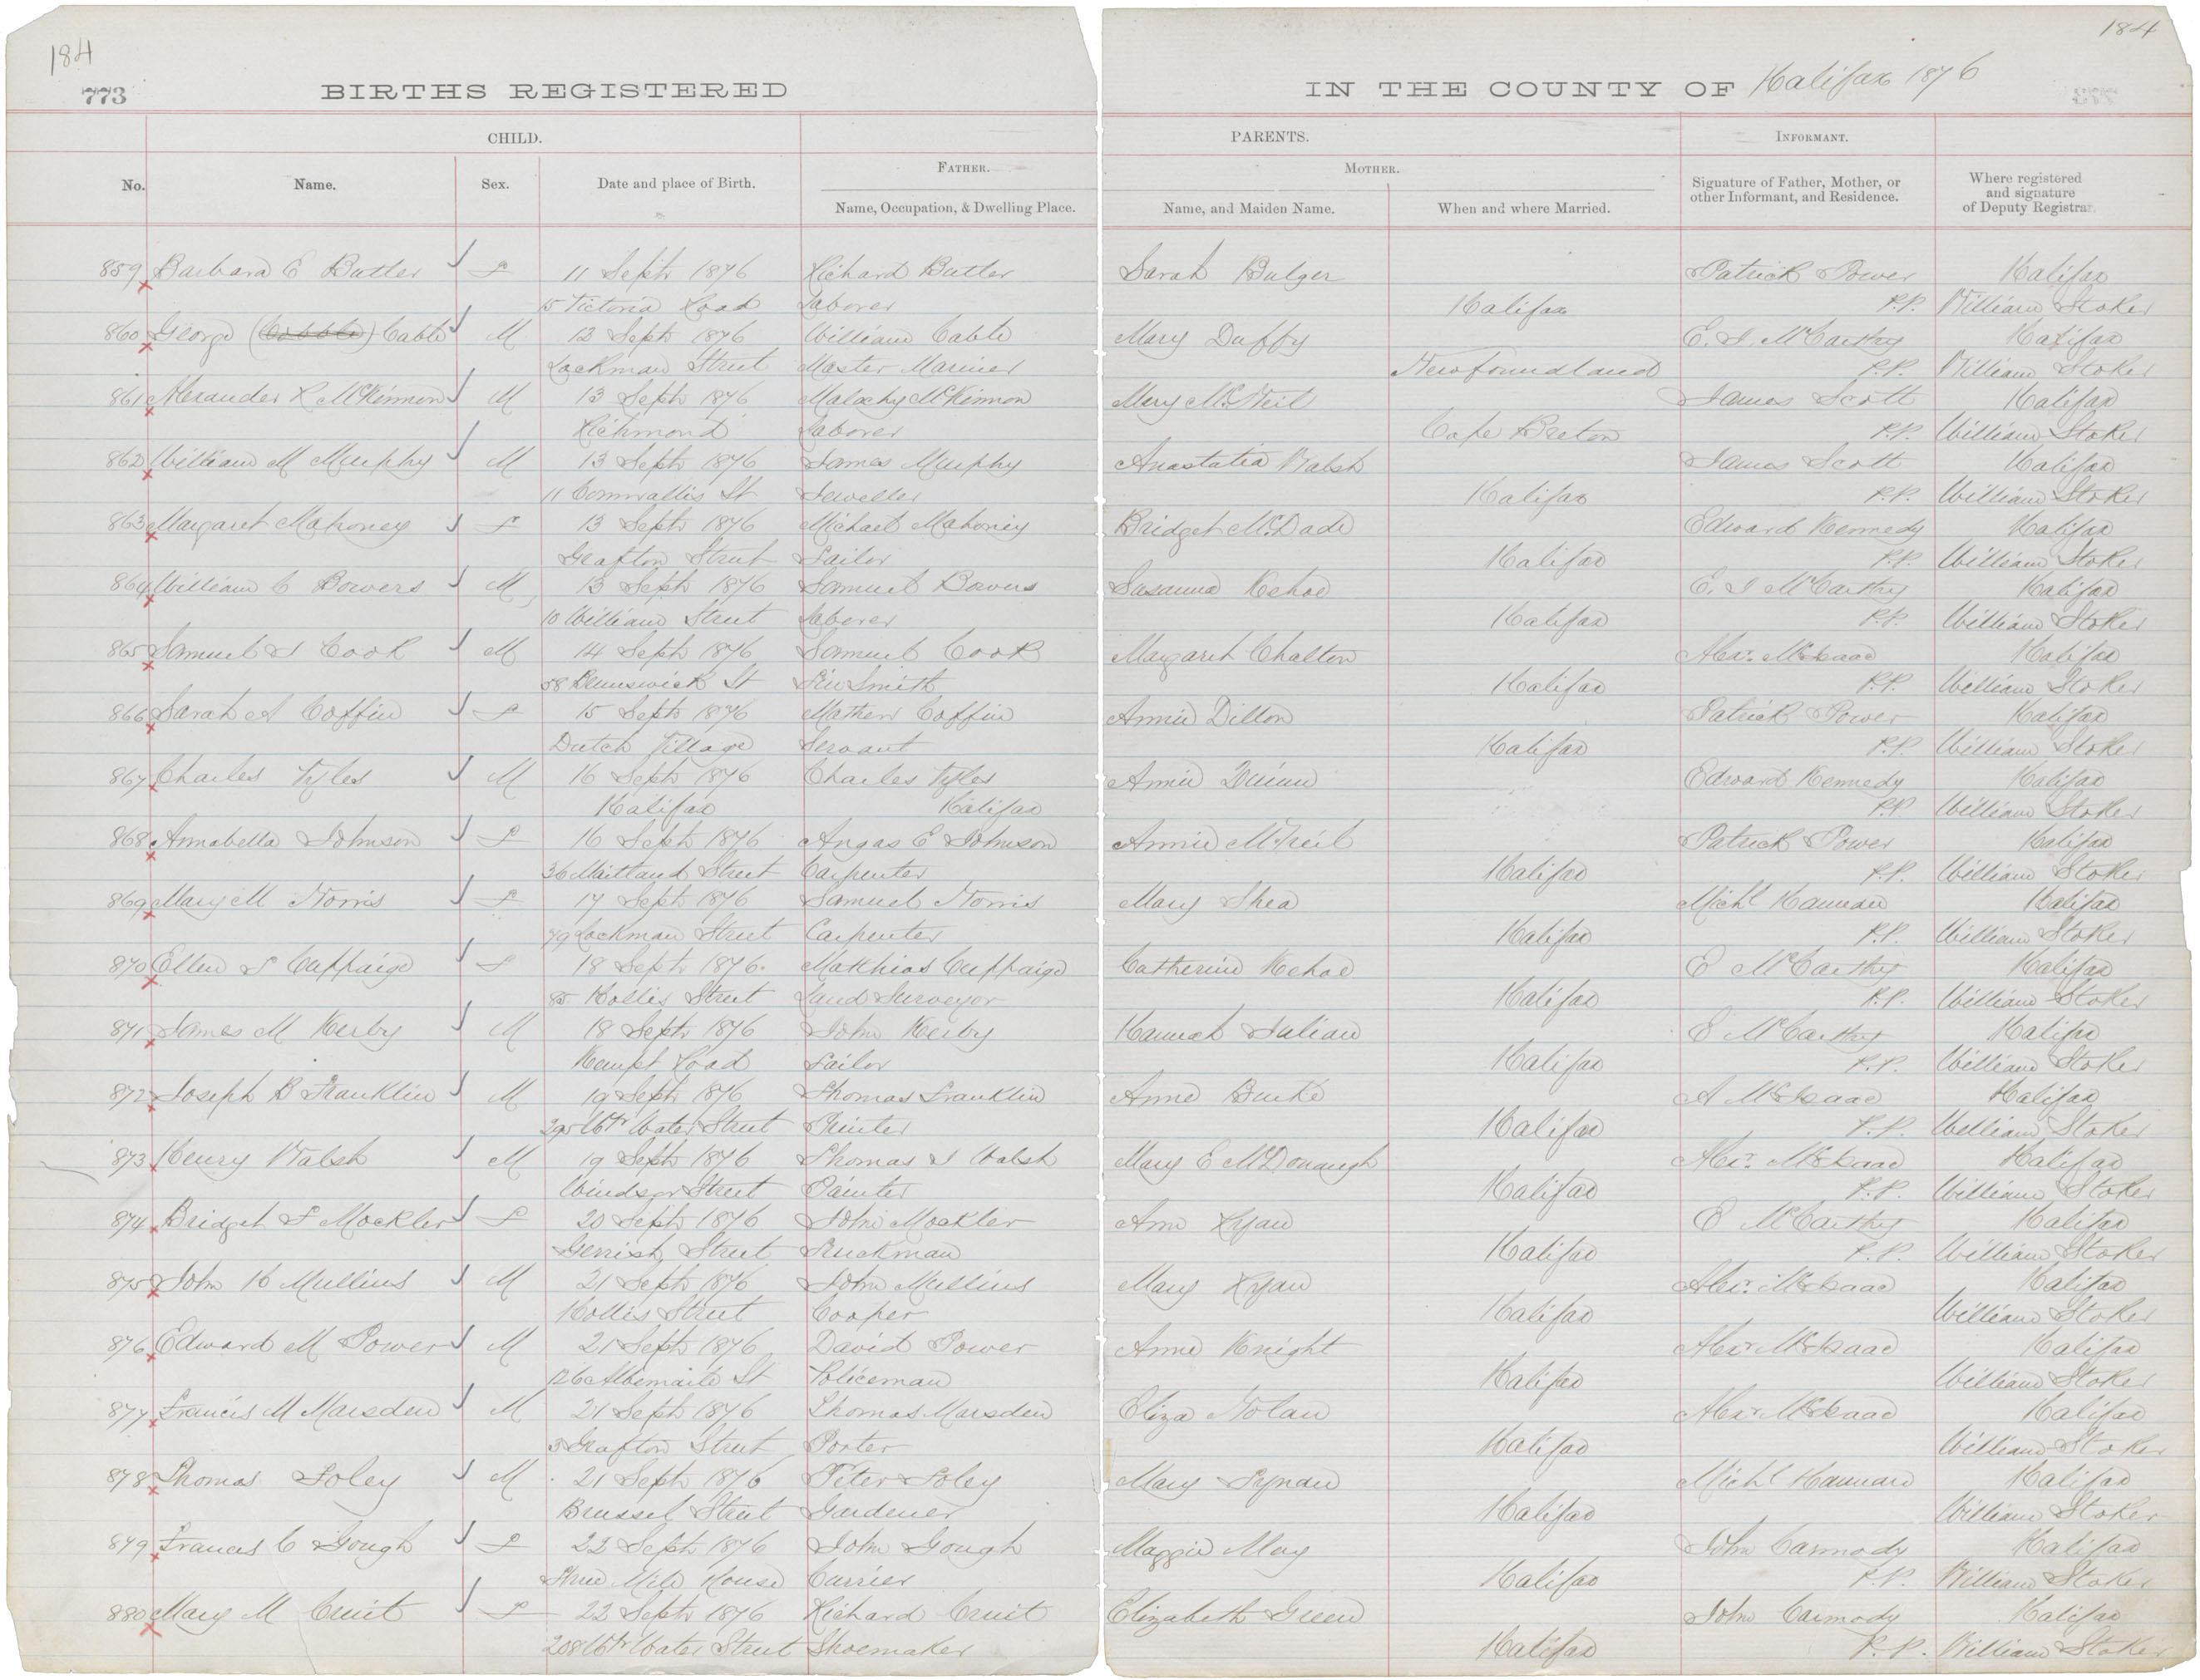 184
184
773
BIRTHS REGISTERED IN THE COUNTY OF Halifax 1876
CHILD. PARENTS. INFORMANT.
FATHER. MOTHER.
No. Name. Sex. Date and place of Birth. Name, Occupation, & Dwelling Place. Name, and Maiden Name. When and where Married. Signature of Father, Mother, or other Informant, and Residence. Where registered and signature of Deputy Registrar.
859 Barbara E Butler F 11 Septr 1876 Richard Butler Sarah Bulger Patrick Power Halifax
15 Victoria Road Laborer Halifax P.P. William Stoker
860 George (Cabble) Cable M 13 Septr 1876 William Cable Mary Duffy E. I. McCarthy Halifax
Lockman Street Master Mariner Newfoundland P.P. William Stoker
861 Alexander R McKinnon M 13 Septr 1876 Malachy McKinnon Mary McNeil James Scott Halifax
Richmond Laborer Cape Breton P.P. William Stoker
862 William M Murphy M 13 Septr 1876 James Murphy Anastatia Walsh James Scott Halifax
11 Cornwallis St Jeweller Halifax P.P. William Stoker
863 Margaret Mahoney F 13 Septr 1876 Michael Mahoney Bridget McDade Edward Kennedy Halifax
Grafton Street Sailor Halifax P.P. William Stoker
864 William C Bowers M 13 Septr 1876 Samuel Bowers Susanna Kehoe E. I McCarthy Halifax
10 William Street Laborer Halifax P.P. William Stoker
865 Samuel J Cook M 14 Septr 1876 Samuel Cook Margaret Chalton Alexr. McIsaac Halifax
58 Brunswick St Tin Smith Halifax P.P. William Stoker
866 Sarah A Coffin F 15 Septr 1876 Mathew Coffin Annie Dillon Patrick Power Halifax
Dutch Village Servant Halifax P.P. William Stoker
867 Charles Tyles M 16 Septr 1876 Charles Tyles Annie Quinn Edward Kennedy Halifax
Halifax Halifax P.P. William Stoker
868 Annabella Johnson F 16 Septr 1876 Angas E Johnson Annie McNeil Patrick Power Halifax
36 Maitland Street Carpenter Halifax P.P. William Stoker
869 Mary M Norris F 17 Septr 1876 Samuel Norris Mary Shea Michl Hannan Halifax
79 Lockman Street Carpenter Halifax P.P. William Stoker
870 Ellen S Cuppaige F 18 Septr 1876. Mathias Cuppaige Catherine Kehoe E McCarthy Halifax
85 Hollis Street Land Surveyor Halifax P.P. William Stoker
871 James M Kerby M 18 Septr 1876 John Kerby Hannah Julian E McCarthy Halifax
Kempt Road Sailor Halifax P.P. William Stoker
872 Joseph B Franklin M 19 Septr 1876 Thomas Franklin Anne Burke A McIsaac Halifax
295 Upr Water Street Printer Halifax P.P. William Stoker
873 Henry Walsh M 19 Septr 1876 Thomas J Walsh Mary E McDonaugh Alexr McIsaac Halifax
Windsor Street Painter Halifax P.P. William Stoker
874 Bridget F Mockler F 20 Septr 1876 John Mockler Ann Ryan E McCarthy Halifax
Gerrish Street Truckman Halifax P.P. William Stoker
875 John H Mullins M 21 Septr 1876 John Mullins Mary Ryan Alexr. McIsaac Halifax
Hollis Street Cooper Halifax William Stoker
876 Edward M Power M 21 Septr 1876 David Power Anne Knight Alexr McIsaac Halifax
126 Albemarle St Policeman Halifax William Stoker
877 Francis M Marsden M 21 Septr 1876 Thomas Marsden Eliza Nolan Alexr McIsaac Halifax
3 Grafton Street Porter Halifax William Stoker
878 Thomas Foley M 21 Septr 1876 Peter Foley Mary Synan Michl Hannan Halifax
Brussel Street Gardener Halifax William Stoker
879 Frances C Gough F 22 Septr 1876 John Gough Maggie May John Carmody Halifax
Three Mile House Currier Halifax P.P. William Stoker
880 Mary M Cruit F 22 Septr 1876 Richard Cruit Elizabeth Green John Carmody Halifax
208 Upr Water Street Shoemaker Halifax P.P. William Stoker